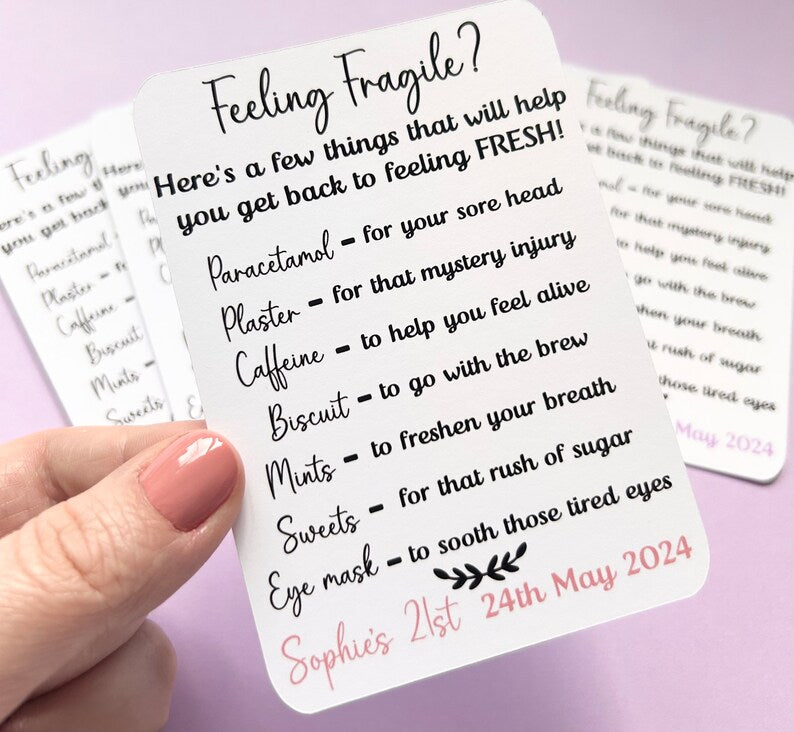 Feeling Fragile?
Here's a few things that will help
you get back to feeling FRESH!
Paracetamol - for your sore head
Plaster - for that mystery injury
Caffeine - to help you feel alive
Biscuit - to go with the brew
Mints - to freshen your breath
Sweets - for that rush of sugar
Eye mask - to sooth those tired eyes
Sophie's 21st 24th May 2024
Feeling
ere's a few th
you get back
Paracetamol
Plaster -
Caffeine -
Biscuit
Mints -
Sweets
Here's
you
Feeling Fragile?
a few things that will help
et back to feeling FRESH!
- for your sore head
for that mystery injury
to help you feel alive
go with the brew
hen your breath
rush of sugar
those tired eyes
May 2024